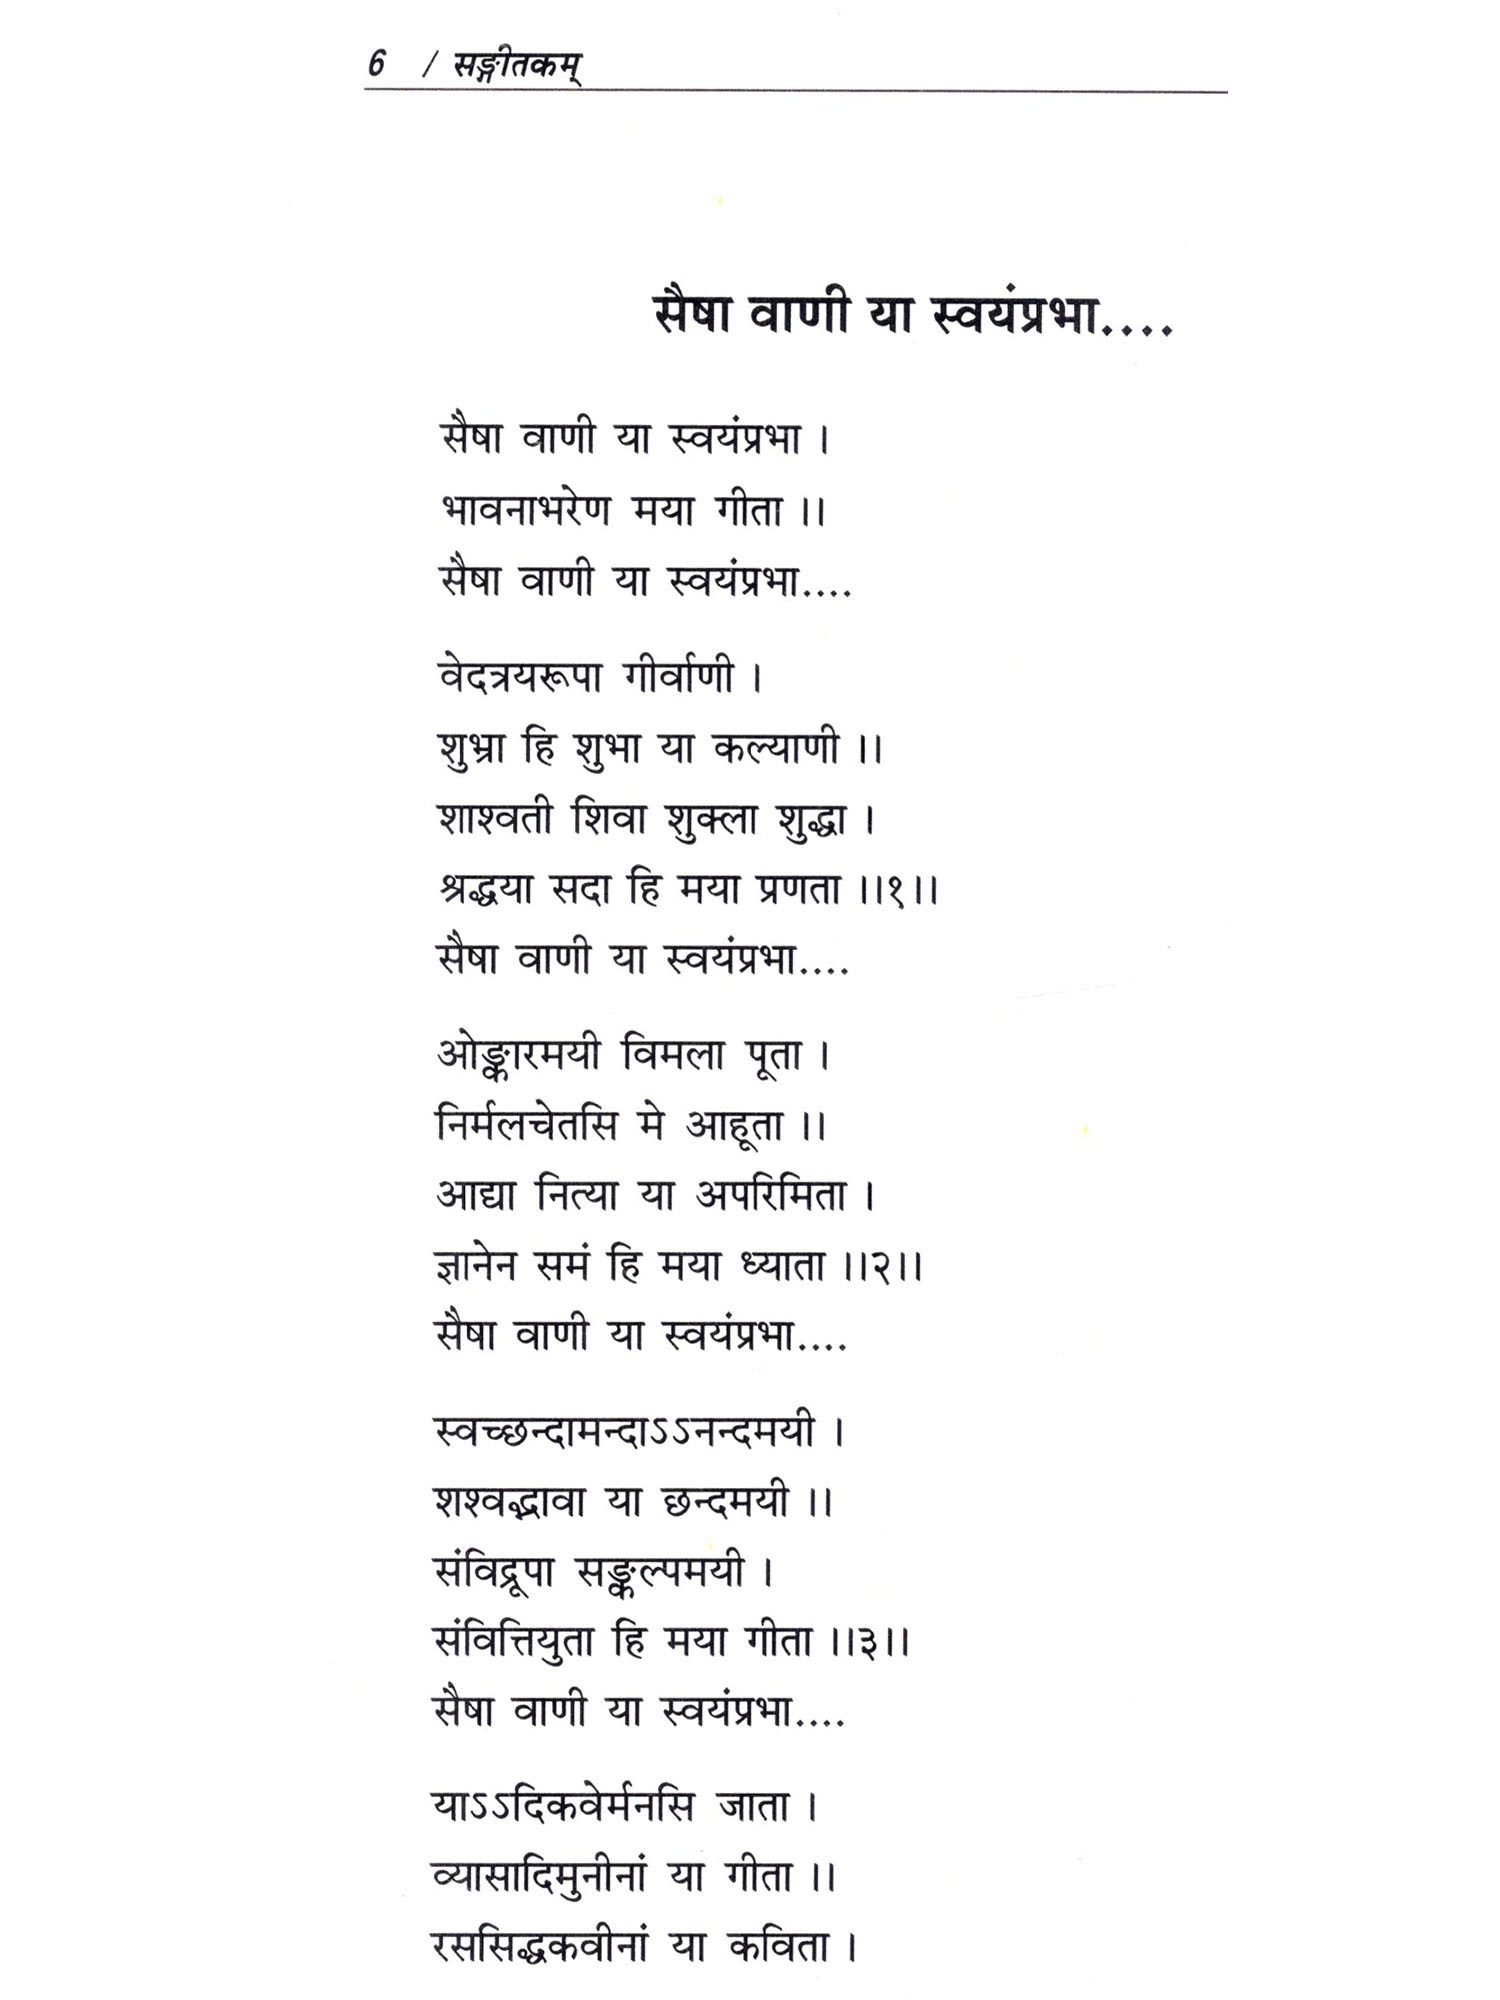 6 / सङ्गीतकम्
सैषा वाणी या स्वयंप्रभा....
सैषा वाणी या स्वयंप्रभा ।
भावनाभरेण मया गीता ।।
सैषा वाणी या स्वयंप्रभा....
वेदत्रयरूपा गीर्वाणी ।
शुभ्रा हि शुभा या कल्याणी ।।
शाश्वती शिवा शुक्ला शुद्धा ।
श्रद्धया सदा हि मया प्रणता ।।१।।
सैषा वाणी या स्वयंप्रभा....
ओङ्कारमयी विमला पूता ।
निर्मलचेतसि मे आहूता ।।
आद्या नित्या या अपरिमिता ।
ज्ञानेन समं हि मया ध्याता ।।२।।
सैषा वाणी या स्वयंप्रभा....
स्वच्छन्दामन्दाऽऽनन्दमयी ।
शश्वद्भावा या छन्दमयी ।।
संविद्रूपा सङ्कल्पमयी ।
संवित्तियुता हि मया गीता ।।३।।
सैषा वाणी या स्वयंप्रभा....
याऽऽदिकवेर्मनसि जाता ।
व्यासादिमुनीनां या गीता ।।
रससिद्धकवीनां या कविता ।